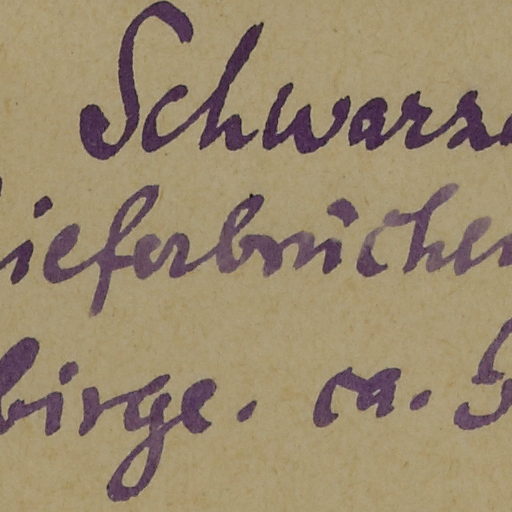 Schwarz
ieferbrüchen
birge. ca. 3